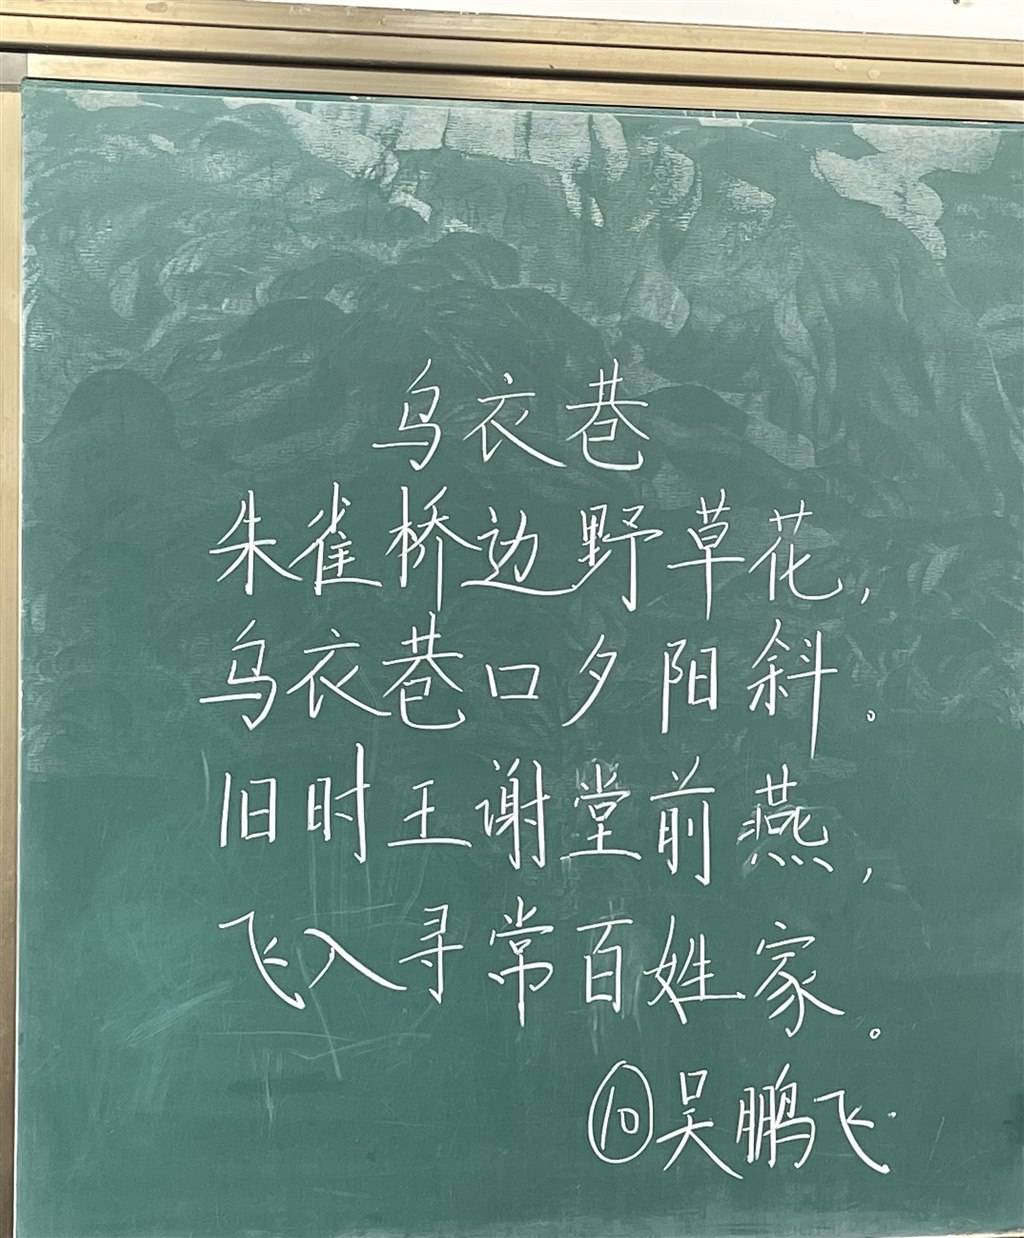 乌衣巷
朱雀桥边野草花，
乌衣巷口夕阳斜。
旧时王谢堂前燕，
飞入寻常百姓家。
⑩吴鹏飞